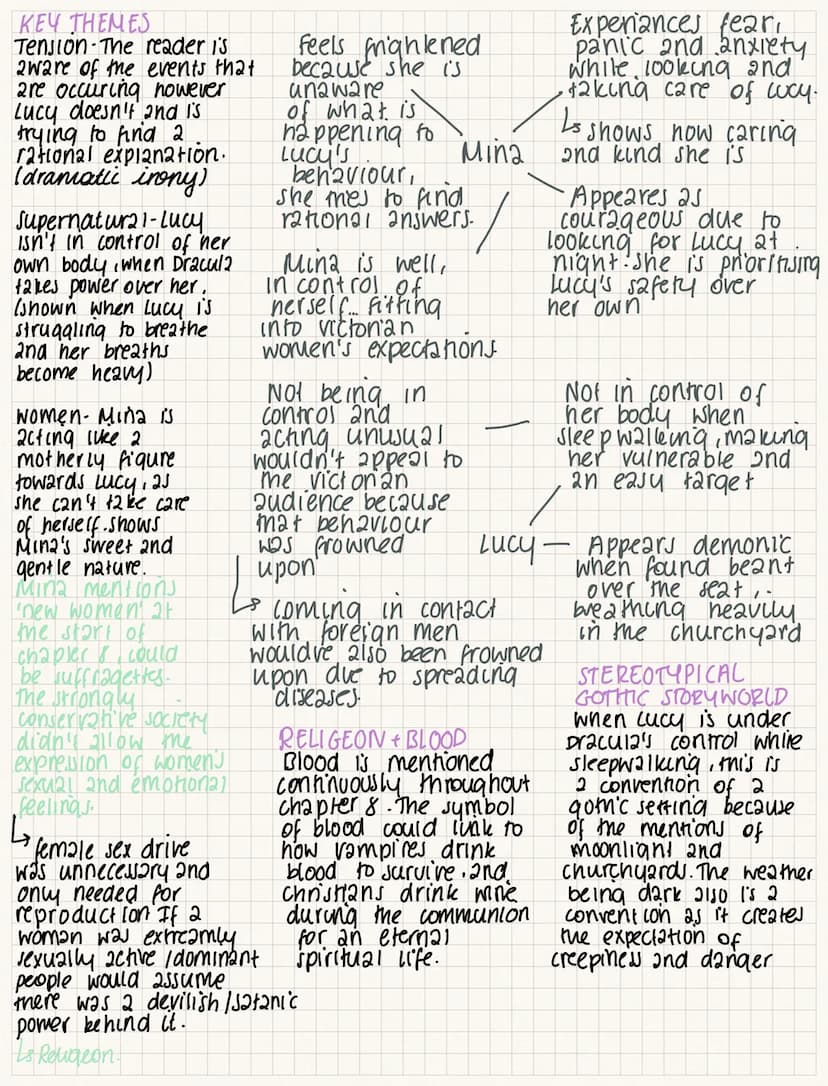 KEY THEMES
Tension-The reader is
aware of the events that
are occuring however
Lucy doesn't and is
trying to find a
rational explanation.
(dramatic irony)
supernatural-Lucy
isn't in control of her
own body, when Dracula
takes power over her.
(shown when Lucy is
struggling to breathe
and her breaths
become heavy)
women- Mina is
acting like a
motherly figure
towards Lucy, as
she can't take care
of herself.shows
Mina's sweet and
gentle nature.
Mina mentions
'new women' at
the start of
chapter 8, could
be suffragettes.
The strongly
conservative society
didn't allow the
expression of women's
sexual and emotional
feelings.
↳ female sex drive
was unnecessary and
only needed for
reproduction If a
woman was extreamly
sexually active/dominant
people would assume
there was a devilish/satanic
power behind it.
↳ Religeon.
Feels frightened
because she is
unaware
of what is
happening to
Lucy's
behaviour,
she tries to find
rational answers.
Mina
Experiances fear,
panic and anxiety
while looking and
taking care of Lucy.
↳ shows how caring
and kind she is
Appeares as
courageous due to
looking for Lucy at
night.she is prioritising
Lucy's safety over
her own
Mina is well,
in control of
herself... fitting
into victorian
women's expectations.
Not being in
control and
acting unusual
wouldn't appeal to
the victorian
audience because
that behaviour
was frowned
upon
↳ coming in contact
with foreign men
wouldve also been frowned
upon due to spreading
diseases.
Lucy
Not in control of
her body when
sleepwalking, making
her vulnerable and
an easy target
Appears demonic
when found beant
over the seat,
breathing heavily
in the churchyard
RELIGEON + BLOOD
Blood is mentioned
continuously throughout
chapter 8. The symbol
of blood could link to
how vampires drink
blood to survive.and
christians drink wine
during the communion
for an eternal
spiritual life.
STEREOTYPICAL
GOTHIC STORYWORLD
When Lucy is under
Dracula's control while
sleepwalking, this is
a convention of a
gothic setting because
of the mentions of
moonlight and
churchyards. The weather
being dark also is a
convention as it creates
the expectation of
creepiness and danger